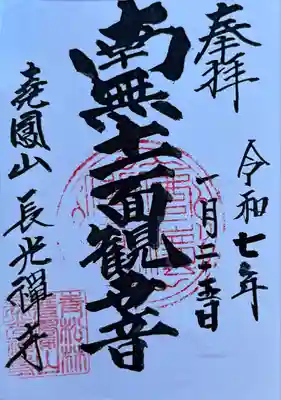 奉拝
令和七年
一月二五日
南無十一面観音
堯圓山 長光禅寺